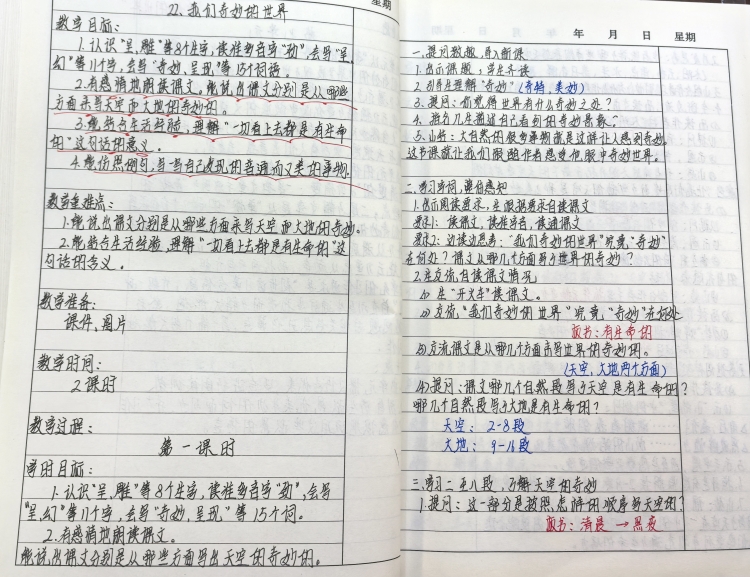 星期
22、我们奇妙的世界
教学目标：
1.认识"呈、雕"等8个生字，读准多音字"劲"，会写"呈、
幻"等11个字，会写"奇妙、呈现"等15个词语。
2.有感情地朗读课文。能说出课文分别是从哪些
方面来写天空和大地的奇妙的。
3.能结合生活经验，理解"一切看上去都是有生命
的"这句话的意义。
4.能仿照例句，写一写自己发现的普通而又美的事物。
教学重难点：
1.能说出课文分别是从哪些方面来写天空和大地的奇妙。
2.能结合生活经验，理解"一切看上去都是有生命的"这
句话的含义。
教学准备：
课件、图片
教学时间：
2课时
教学过程：
第一课时
学时目标：
1.认识"呈、雕"等8个生字，读准多音字"劲"，会写
"呈、幻"等11个字，会写"奇妙、呈现"等15个词。
2.有感情地朗读课文。
能说出课文分别是从哪些方面写出天空的奇妙的。
年 月 日 星期
一、提问激趣，导入新课
1.出示课题，学生齐读
2.引导生理解"奇妙"（奇特、美妙）
3.提问：你觉得世界有什么奇妙之处？
4.指名几生描述自己看到的奇妙景象。
5.小结：大自然的很多事物就是这样让人感到奇妙，
这节课就让我们跟随作者感受他眼中奇妙世界。
二、学习字词，整体感知
1.出示阅读要求，生根据要求自读课文
要求1：读课文，读准字音，读通课文
要求2：边读边思考："我们奇妙的世界"究竟"奇妙"
在何处？课文从哪几个方面写了世界的奇妙？
2.生交流自读课文情况
(1)生"开火车"读课文。
(2)交流"我们奇妙的世界"究竟"奇妙"在何处
板书：有生命的
(3)交流课文是从哪几个方面来写世界的奇妙的。
（天空、大地两个方面）
(4)提问：课文哪几个自然段写了天空是有生命的？
哪几个自然段写了大地是有生命的？
天空：2-8段
大地：9-16段
三、学习二至八段，了解天空的奇妙
1.提问：这一部分是按照怎样的顺序写天空的？
板书：清晨→黑夜